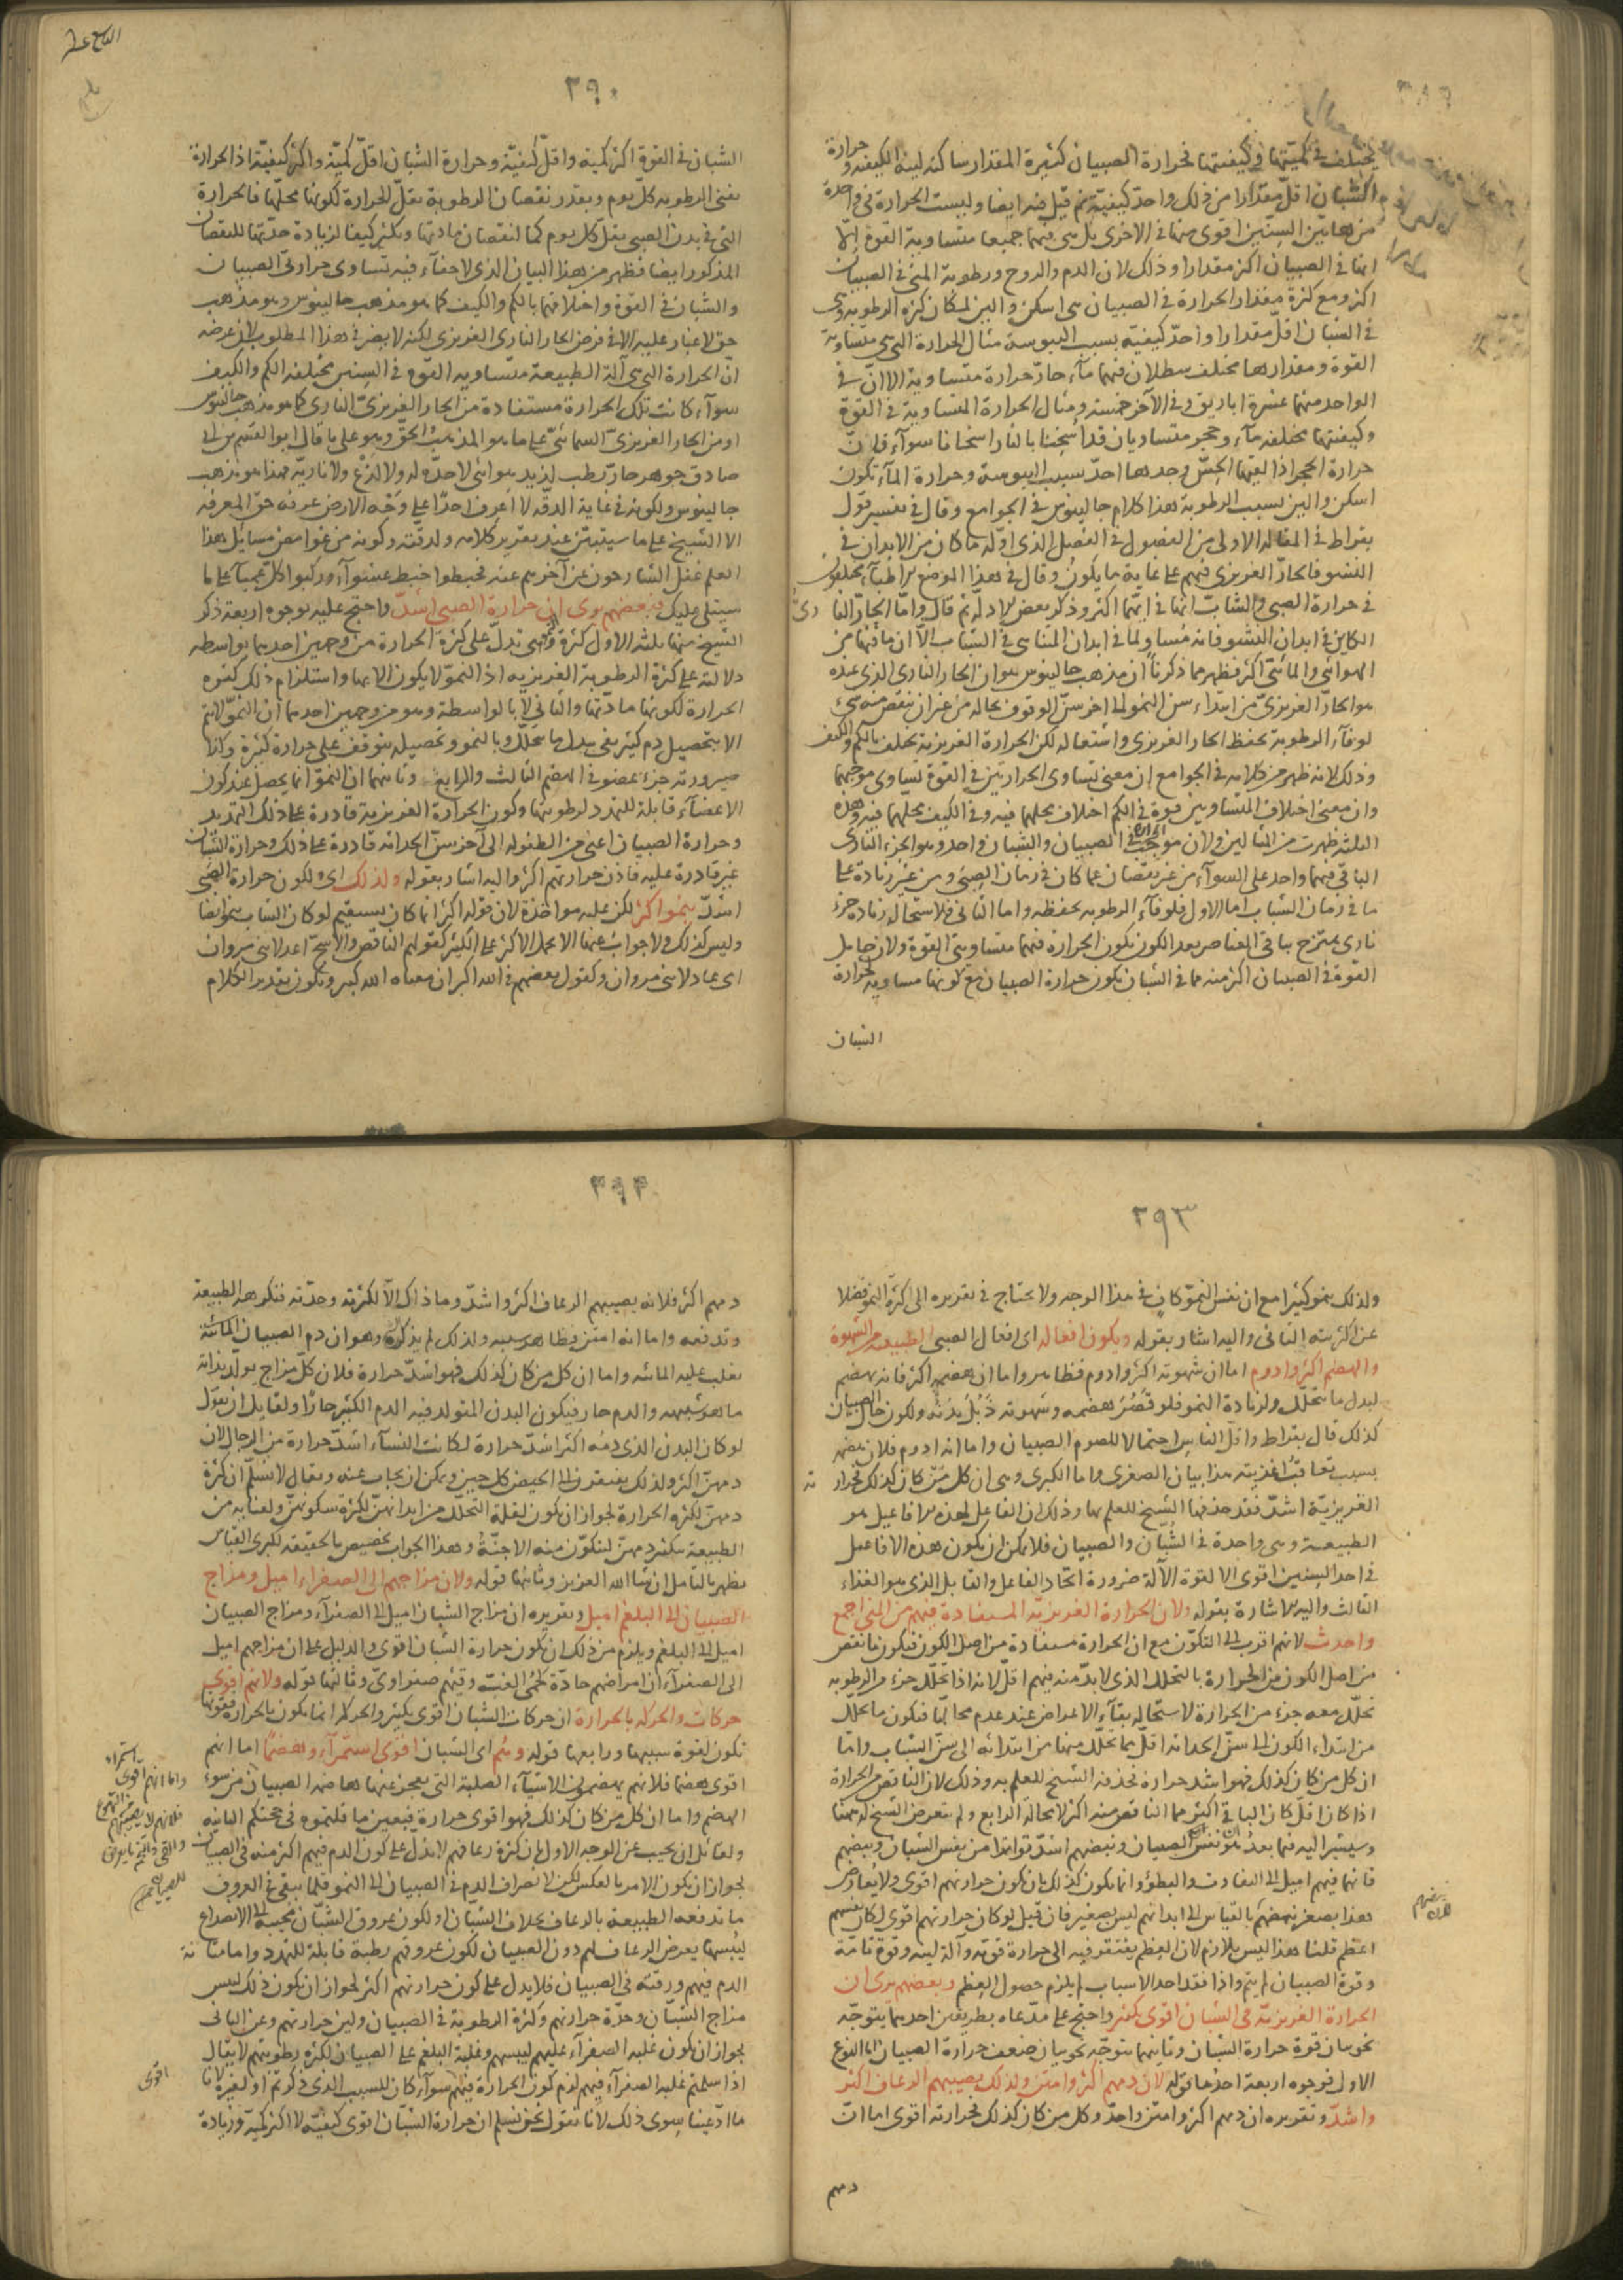 ٢٨٩
يختلف في كميتها وكيفيتها فحرارة الصبيان كثيرة المقدار ساكنة لينة الكيفية وحرارة
الشبان اقل مقدارا من ذلك واحد كيفية ثم قيل فيه ايضا وليست الحرارة في واحدة
من هاتين السنين اقوى منها في الاخرى بل هى فيهما جميعا متساوية القوة الا
انها في الصبيان اكثر مقدارا وذلك لان الدم والروح ورطوبة المنى في الصبيان
اكثر ومع كثرة مقدار الحرارة في الصبيان هى اسكن والين لمكان كثرة الرطوبة وهى
في الشبان اقل مقدارا واحد كيفية بسبب اليبوسة مثال الحرارة التى هى متساوية
القوة ومقدارها مختلف سطلان فيهما مآء حار حرارة متساوية الا ان في
الواحد منهما عشرة اباريق وفي الآخر خمسة ومثال الحرارة المتساوية في القوة
وكيفيتها مختلفة مآء وحجر متساويان قد اسخنا بالنار اسخانا سوآء فان
حرارة الحجر اذا لقيها الحس وجدها احد بسبب اليبوسة وحرارة المآء تكون
اسكن والين بسبب الرطوبة هذا كلام جالينوس في الجوامع وقال في تفسير قول
بقراط في المقالة الاولى من الفصول في الفصل الذى اوله ما كان من الابدان في
النشو فالحار الغريزى فيهم على غاية ما يكون وقال في هذا الموضع الاطبآء مختلفون
في حرارة الصبى والشاب انها في ايهما اكثر وذكر بعض الادلة ثم قال واما الحار
الكاين في ابدان النشو فانه مساو لما في ابدان المتناهى في الشباب الا ان ما فيها من
الهوائى والمائى اكثر فظهر مما ذكرنا ان مذهب جالينوس هو ان الحار النارى الذى عنده
هو الحار الغريزى من ابتداء سن النمو الى آخر سن الوقوف بحاله من غير ان ينقص منه شئ
لوفآء الرطوبة بحفظ الحار الغريزى واشتعاله لكن الحرارة الغريزية تختلف بالكم والكيف
وذلك لانه ظهر من كلامه في الجوامع ان معنى تساوى الحرارتين في القوة تساوى موجبهما
وان معنى اختلاف المتساويين قوة في الكم اختلاف محلهما فيه وفي الكيف محلهما فيه وهذه
الثلثة ظهرت من المثالين ولان موجب الحرارة في الصبيان والشبان واحد وهو الجزء النارى
الباقى فيهما واحد على السوآء من غير نقصان عما كان في زمان الصبى ومن غير زيادة على
ما في زمان الشباب اما الاول فلوفآء الرطوبة بحفظه واما الثانى فلاستحالة زيادة جزء
نارى يمتزج بباقى العناصر بعد الكون تكون الحرارة فيهما متساويتى القوة ولان حامل
القوة في الصبيان اكثر منه مما في الشبان تكون حرارة الصبيان مع كونها مساوية لحرارة
الشبان
٢٩٠
الشبان في القوة اكثر كمية واقل كيفية وحرارة الشبان اقل كمية واكثر كيفية اذ الحرارة
تفنى الرطوبة كل يوم وبقدر نقصان الرطوبة تقل الحرارة لكونها محلها فالحرارة
التى في بدن الصبى تقل كل يوم كما لنقصان مادتها وتكثر كيفا لزيادة حدتها للنقصان
المذكور ايضا فظهر من هذا البيان الذى لا خفآء فيه تساوى حرارتى الصبيان
والشبان في القوة واختلافهما بالكم والكيف كما هو مذهب جالينوس وهو مذهب
حق لا غبار عليه الا في فرض الحار النارى الغريزى لكنه لا يضر في هذا المطلوب لان غرضه
ان الحرارة التى هى آلة الطبيعة متساوية القوة في السنين مختلفة الكم والكيف
سوآء كانت تلك الحرارة مستفادة من الحار الغريزى النارى كما هو مذهب جالينوس
او من الحار الغريزى السمائى على ما هو المذهب الحق وهو على ما قال ابو القسم بن ابى
صادق جوهر حار رطب لذيذ هوائى لا حدة له ولا لذع ولا نارية فهذا هو مذهب
جالينوس ولكونه في غاية الدقة لا اعرف احدا على وجه الارض عرفه حق المعرفة
الا الشيخ على ما سيتبين عند تقرير كلامه ولدقته وكونه من غوامض مسائل هذا
العلم غفل الشارحون عن آخرهم عنه فخبطوا خبط عشوآء وركبوا كل عمياء على ما
سيتلى عليك فبعضهم يرى ان حرارة الصبى اشد واحتج عليه بوجوه اربعة ذكر
الشيخ منها ثلثة الاول كثرة النمو وهى تدل على كثرة الحرارة من وجهين احدهما بواسطة
دلالته على كثرة الرطوبة الغريزية اذ النمو لا يكون الا بها واستلزام ذلك كثرة
الحرارة لكونها مادتها والثانى لا بالواسطة وهو من وجهين احدهما ان النمو لا يتم
الا بتحصيل دم كثير يفى ببدل ما يتحلل وبالنمو وتحصيله يتوقف على حرارة كثيرة وكذا
صيرورته جزء عضو في الهضم الثالث والرابع وثانيهما ان النمو انما يحصل عند كون
الاعضآء قابلة للتمدد لرطوبتها وكون الحرارة الغريزية قادرة على ذلك التمديد
وحرارة الصبيان اعنى من الطفولة الى آخر سن الحداثة قادرة على ذلك وحرارة الشبان
غير قادرة عليه فاذن حرارتهم اكثر واليه اشار بقوله ولذلك اى لكون حرارة الصبى
اشد ينمو اكثر لكن عليه مواخذة لان قوله اكثر انما كان يستقيم لو كان الشاب ينمو ايضا
وليس كذلك ولا جواب عنها الا بحمل الاكثر على الكثير كقولهم الناقص والاشج اعدلا بنى مروان
اى عادلا بنى مروان وكقول بعضهم في الله اكبر ان معناه الله كبير ويكون تقدير الكلام
٢٩٣
ولذلك ينمو كثيرا مع ان نفس النمو كاف في هذا الوجه ولا يحتاج في تقريره الى كثرة النمو فضلا
عن اكثريته الثانى واليه اشار بقوله ويكون افعاله اى افعال الصبى الطبيعية من الشهوة
والهضم اكثر وادوم اما ان شهوته اكثر وادوم فظاهر واما ان هضمهم اكثر فانه يهضم
لبدل ما يتحلل ولزيادة النمو فلو قصر هضمه وشهوته ذبل بدنه ولكون حال الصبيان
كذلك قال بقراط واقل الناس احتمالا للصوم الصبيان واما انه ادوم فلان هضمه
بسبب تعاقب اغذيته هذا بيان الصغرى واما الكبرى وهى ان كل من كان كذلك فحرارته
الغريزية اشد فقد حذفها الشيخ للعلم بها وذلك ان الفاعل لهذه الافاعيل هو
الطبيعة وهى واحدة في الشبان والصبيان فلا يمكن ان يكون هذه الافاعيل
في احد السنين اقوى الا لقوة الآلة ضرورة اتحاد الفاعل والقابل الذى هو الغذاء
الثالث واليه الاشارة بقوله ولان الحرارة الغريزية المستفادة فيهم من المنى اجمع
واحدث لانهم اقرب الى التكون مع ان الحرارة مستفادة من اصل الكون فيكون ما نقص
من اصل الكون من الحرارة بالتحلل الذى لا بد منه فيهم اقل لانه اذا تحلل جزء من الرطوبة
تحلل معه جزء من الحرارة لاستحالة بقآء الاعراض عند عدم محالها فيكون ما تحلل
من ابتداء الكون الى سن الحداثة اقل مما تحلل منها من ابتدائه الى سن الشباب واما
ان كل من كان كذلك فهو اشد حرارة فحذفه الشيخ للعلم به وذلك لان الناقص من الحرارة
اذا كان اقل كان الباقى اكثر مما الناقص منه اكثر لا محالة الرابع ولم يتعرض الشيخ له ههنا
وسيشير اليه فيما بعد هو ان نفس الصبيان ونبضهم اشد تواترا من نفس الشبان ونبضهم
فانهما فيهم اميل الى التفاوت والبطؤ وانما يكون كذلك بان يكون حرارتهم اقوى ولا يعارض
هذا بصغر نبضهم بالقياس الى ابدانهم ليس بصغير فان قيل لو كان حرارتهم اقوى لكان نبضهم
اعظم قلنا هذا ليس بلازم لان العظم يفتقر فيه الى حرارة قوية وآلة لينة وقوة تامة
وقوة الصبيان لم يتم واذا فقد احد الاسباب لم يلزم حصول العظم وبعضهم يرى ان
الحرارة الغريزية في الشبان اقوى بكثير واحتج على مدعاه بطريقين احدهما يتوجه
نحو بيان قوة حرارة الشبان وثانيهما يتوجه نحو بيان ضعف حرارة الصبيان اما النوع
الاول فوجوه اربعة احدها قوله لان دمهم اكثر وامتن ولذلك يصيبهم الرعاف اكثر
واشد وتقريره ان دمهم اكثر وامتن واحد وكل من كان كذلك فحرارته اقوى اما ان
دمهم
٢٩٤
دمهم اكثر فلانه يصيبهم الرعاف اكثر واشد وما ذاك الا لكثرته وحدته فتكرهه الطبيعة
وتدفعه واما انه امتن فظاهر سببه ولذلك لم يذكره وهو ان دم الصبيان المائية
يغلب عليه المائية واما ان كل من كان كذلك فهو اشد حرارة فلان كل مزاج يولد بذاته
ما هو شبيهه والدم حار فيكون البدن المتولد فيه الدم الكثير حارا ولقايل ان يقول
لو كان البدن الذى دمه اكثر اشد حرارة لكانت النسآء اشد حرارة من الرجال لان
دمهن اكثر ولذلك يفتقرن الى الحيض كل حين ويمكن ان يجاب عنه ويقال لا نسلم ان كثرة
دمهن لكثرة الحرارة لجواز ان يكون لقلة التحلل من ابدانهن لكثرة سكونهن ولعناية من
الطبيعة بتكثير دمهن ليتكون منه الاجنة وهذا الجواب تخصيص بالحقيقة لكبرى القياس
يظهر بالتامل ان شا الله العزيز وثانيها قوله ولان مزاجهم الى الصفراء اميل ومزاج
الصبيان الى البلغم اميل وتقريره ان مزاج الشبان اميل الى الصفرآء ومزاج الصبيان
اميل الى البلغم ويلزم من ذلك ان يكون حرارة الشبان اقوى والدليل على ان مزاجهم اميل
الى الصفرآء ان امراضهم حادة كحمى الغب وقيئهم صفراوى وثالثها قوله ولانهم اقوى
حركات والحركة بالحرارة اى حركات الشبان اقوى بكثير والحركة انما يكون بالحرارة فقوتها
تكون لقوة سببها ورابعها قوله وهم اى الشبان اقوى استمرآء وهضما اما انهم
اقوى هضما فلانهم يهضمون الاشيآء الصلبة التى يعجز عنها هاضمة الصبيان من سوء
الهضم واما ان كل من كان كذلك فهو اقوى حرارة فبعين ما قلتموه في حجتكم الثانية
ولقائل ان يجيب عن الوجه الاول بان كثرة رعافهم لا تدل على كون الدم فيهم اكثر منه في الصبيان
لجواز ان يكون الامر بالعكس لكن لانصراف الدم في الصبيان الى النمو قلما يبقى في العروق
ما تدفعه الطبيعة بالرعاف بخلاف الشبان او لكون عروق الشبان مجيبة الى الانصداع
ليبسها يعرض الرعاف لهم دون الصبيان لكون عروقهم رطبة قابلة للتمدد واما متانة
الدم فيهم ورقته في الصبيان فلا يدل على كون حرارتهم اكثر لجواز ان يكون ذلك ليبس
مزاج الشبان وحدة حرارتهم وكثرة الرطوبة في الصبيان ولين حرارتهم وعن الثانى
بجواز ان يكون غلبة الصفرآء عليهم ليبسهم وغلبة البلغم على الصبيان لكثرة رطوبتهم لا يقال
اذا سلمتم غلبة الصفرآء فيهم لزم كون الحرارة فيهم سوآء كان للسبب الذى ذكرتم او لغيره لانا
ما ادعينا سوى ذلك لانا نقول نحن نسلم ان حرارة الشبان اقوى كيفية لا اكثر كمية وزيادة
واما انهم اقوى استمراء
اقوى